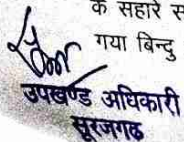 के सहारे
गया बिन्दु
उपखण्ड अधिकारी
सूरजगढ